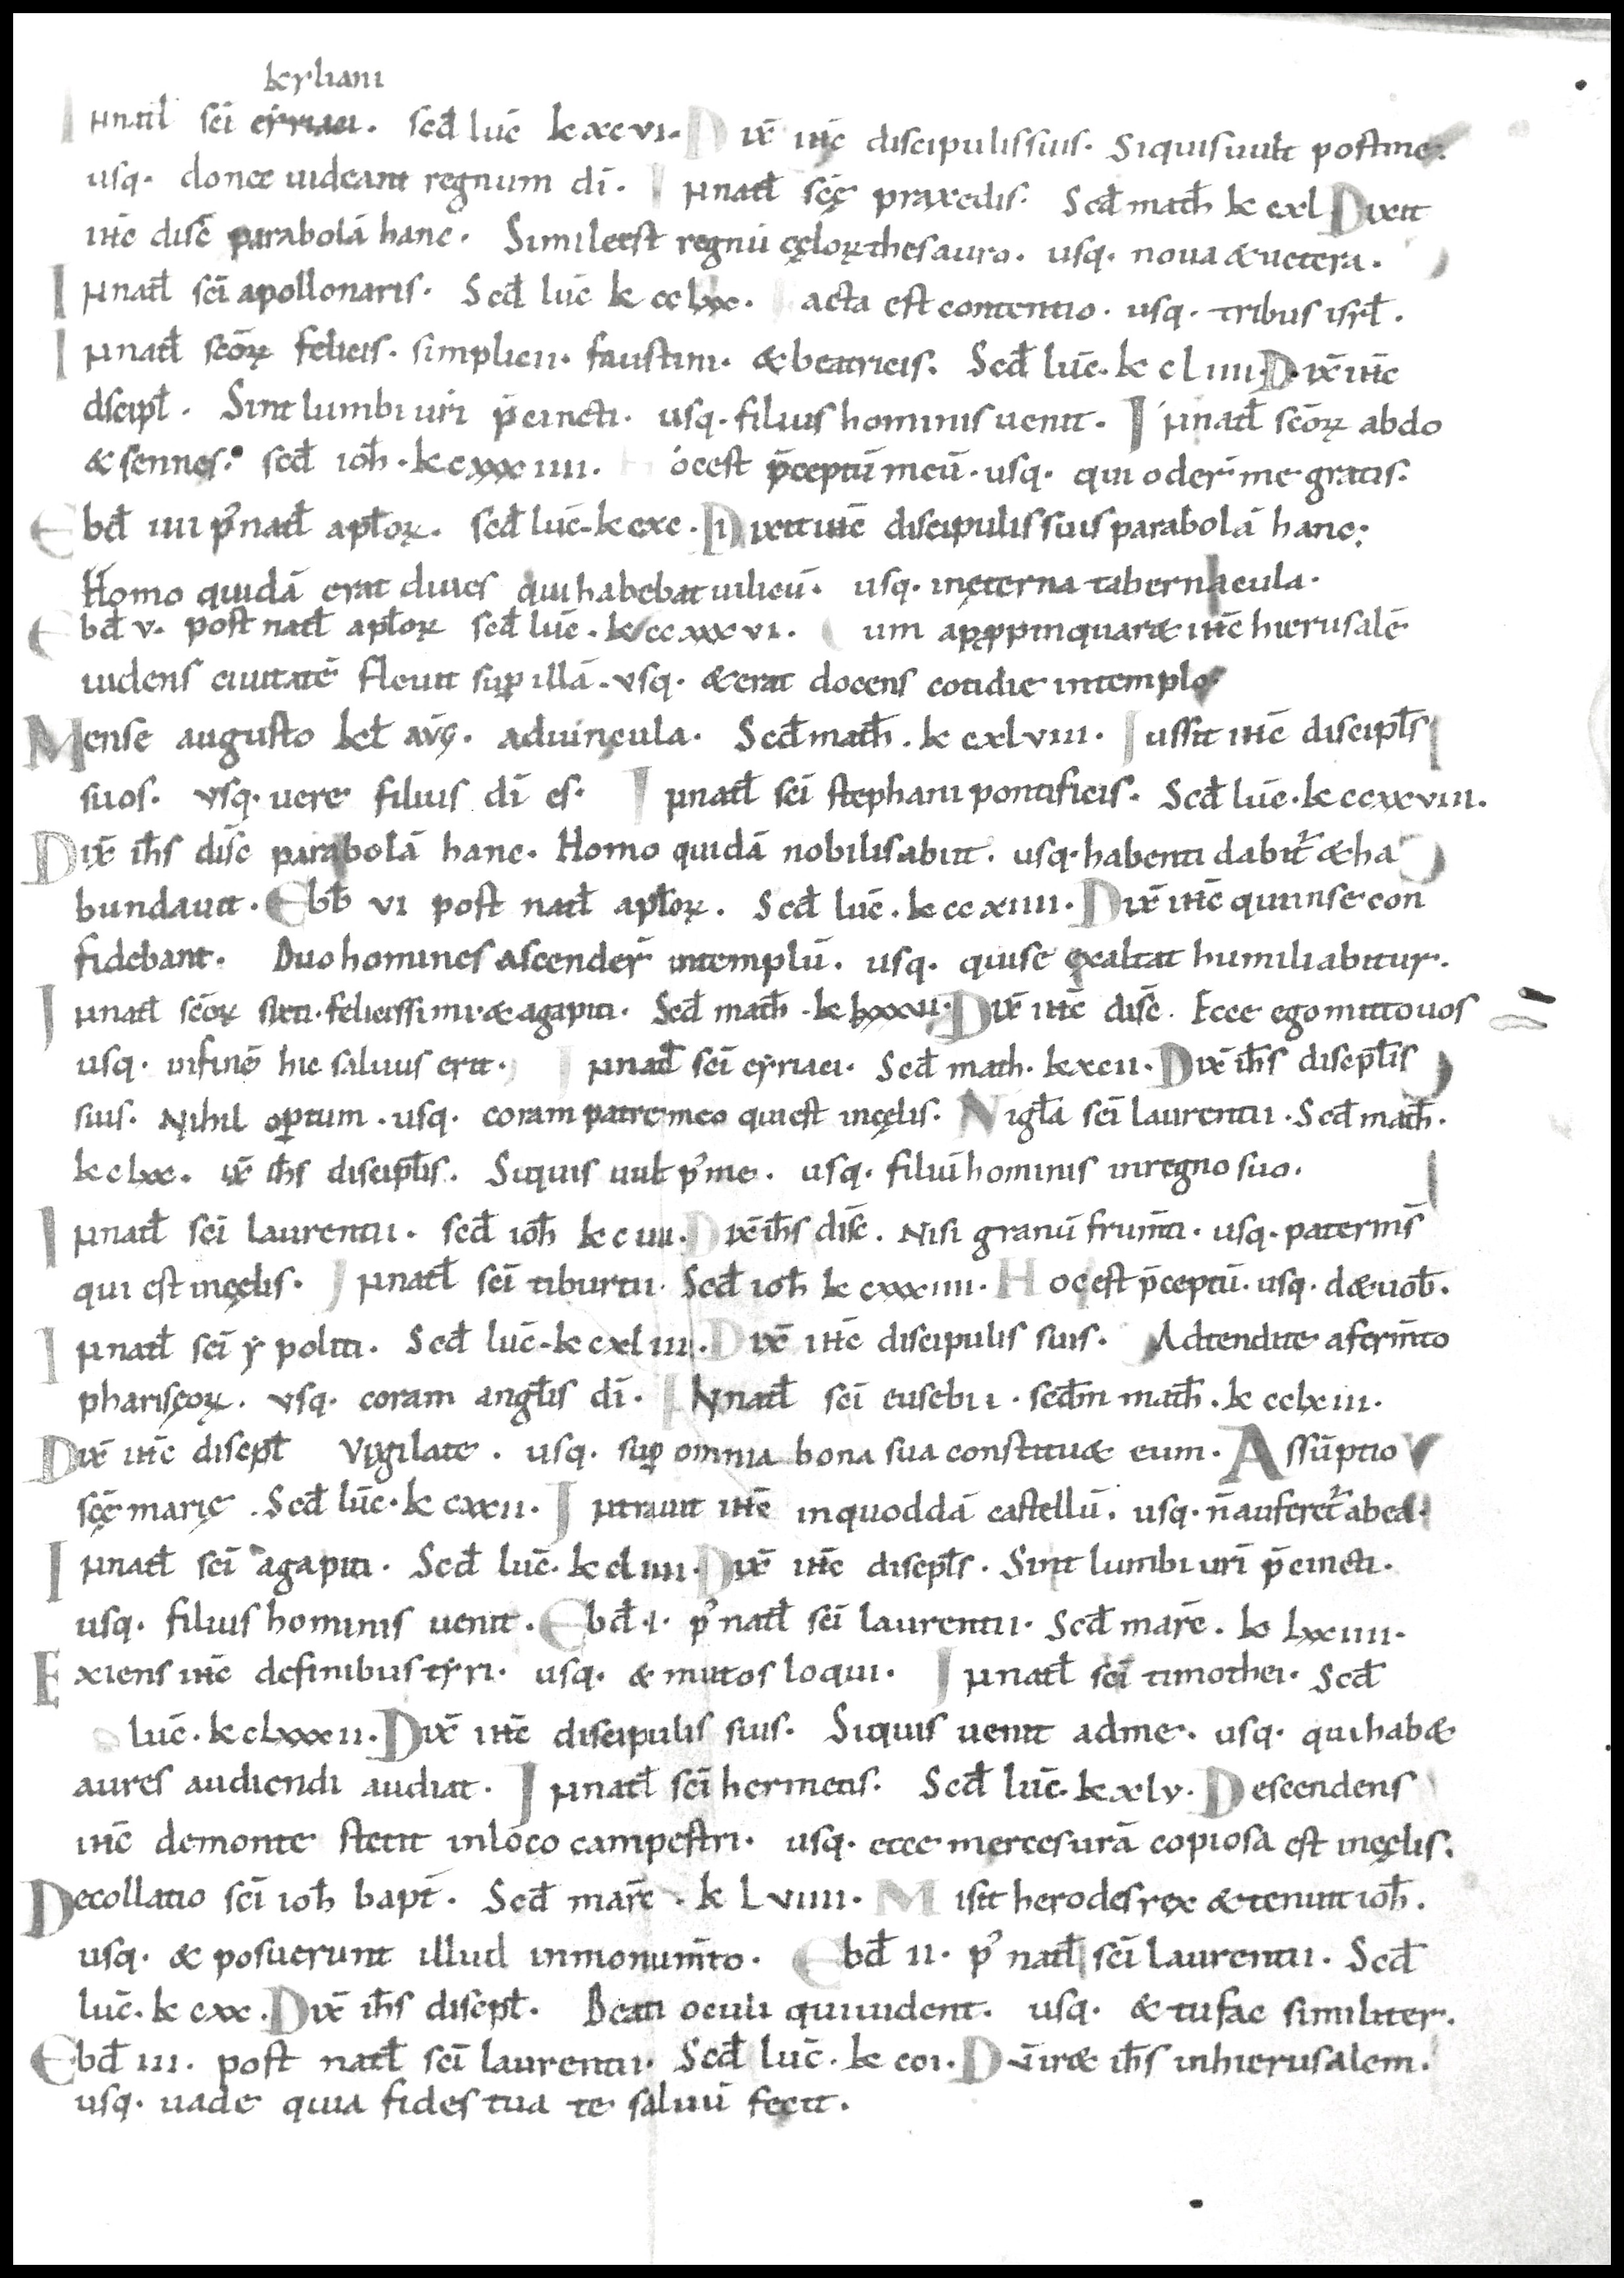 kyliani
In natł sc̄i cyriaci. sc̄d luc̄ k xcvi. Dix̄ ih̄c discipulis suis. Siquis uult post me.
usq. donec uideant regnum dī. In natł sc̄ę praxedis. Sc̄d math̄ k cxl Dixit
ih̄c disc̄ parabolā hanc. Simile est regnū cęlorꝝ thesauro. usq. noua & uetera.
In natł sc̄i apollonaris. Sc̄d luc̄ k cclxx. acta est contentio. usq. tribus isrł.
In natł sc̄orꝝ felicis. simplicii. faustini. & beatricis. Sc̄d luc̄. k cliiii. Dix̄ ih̄c
discipł. Sint lumbi ur̄i p̄cincti. usq. filius hominis uenit. In natł sc̄orꝝ abdo
& sennes. sc̄d ioh̄. k cxxxiiii. Hoc est p̄ceptū meū. usq. qui oder̄ me gratis.
Ebd̄ iiii p' natł aplorꝝ. sc̄d luc̄. k cxc. Dixit ih̄c discipulis suis parabolā hanc;
Homo quidā erat diues qui habebat uilicū. usq. in ęterna tabernacula.
Ebd̄ v. post natł aplorꝝ sc̄d luc̄. k ccxxxvi. Cum appropinquar& ih̄c hierusalē
uidens ciuitatē fleuit sup illā. vsq. & erat docens cotidie in templo.
Mense augusto kł avḡ. ad uincula. Sc̄d math̄. k cxlviii. Iussit ih̄c discipłs
suos. vsq. uere filius dī es. In natł sc̄i stephani pontificis. Sc̄d luc̄. k ccxxviii.
Dix̄ ih̄s disc̄ parabolā hanc. Homo quidā nobilis abiit. usq. habenti dabit̄ & ha
bundauit. Ebb̄ vi post natł aplorꝝ. Sc̄d luc̄. k ccxiiii. Dix̄ ih̄c qui in se con
fidebant. Duo homines ascender̄ in templū. usq. qui se exaltat humiliabitur.
In natł sc̄orꝝ sixti. felicissimi. & agapiti. Sc̄d math̄. k lxxxii. Dix̄ ih̄c disc̄. Ecce ego mitto uos
usq. in finē hic saluus erit. In natł sc̄i cyriaci. Sc̄d math. k xcii. Dix̄ ih̄s discpłis
suis. Nihil optum. usq. coram patre meo qui est in cęlis. N igła sc̄i laurentii. Sc̄d math̄.
k clxx. ix̄ ih̄s discipłis. Siquis uult p' me. usq. filiū hominis in regno suo.
In natł sc̄i laurentii. sc̄d ioh̄ k ciiii. Dix̄ ih̄s disc̄. Nisi granū frum̄ti. usq. pater m̄s
qui est in cęlis. In natł sc̄i tiburtii. Sc̄d ioh̄ k cxxxiiii. Hoc est p̄ceptū. usq. d& uob̄.
In natł sc̄i ypoliti. Sc̄d luc̄. k cxliii. Dix̄ ih̄c discipulis suis. Adtendite a ferm̄to
pharisęorꝝ. vsq. coram angłis dī. IN natł sc̄i eusebii. sc̄dm math̄. k cclxiii.
Dix̄ ih̄c discpł Vigilate. usq. sup omnia bona sua constitu& eum. Assūptio
sc̄ę marię. Sc̄d luc̄. k cxxii. Intrauit ih̄c in quoddā castellū. usq. n̄ auferet̄ ab ea.
In natł sc̄i agapiti. Sc̄d luc̄. k cliiii. Dix̄ ih̄c discpłs. Sint lumbi ur̄i p̄cincti.
usq. filius hominis uenit. Ebd̄. i. p' natł sc̄i laurentii. Sc̄d marc̄. k lxxiiii.
Exiens ih̄c de finibus tyri. usq. & mutos loqui. In natł sc̄i timothei. Sc̄d
luc̄. k clxxxii. Dix̄ ih̄c discipulis suis. Siquis uenit ad me. usq. qui hab&
aures audiendi audiat. In natł sc̄i hermetis. Sc̄d luc̄. k xlv. Descendens
ih̄c de monte stetit in loco campestri. usq. ecce merces ur̄a copiosa est in cęlis.
Decollatio sc̄i ioh̄ bapt̄. Sc̄d marc̄. k Lviiii. Misit herodes rex & tenuit ioh̄.
usq. & posuerunt illud in monum̄to. Ebd̄ ii. p' natł sc̄i laurentii. Sc̄d
luc̄. k cxx. Dix̄ ih̄s discpł. Beati oculi qui uident. usq. & tu fac similiter.
Ebd̄ iii. post natł sc̄i laurentii. Sc̄d luc̄. k cci. Dū ir& ih̄s in hierusalem.
usq. uade quia fides tua te saluū fecit.